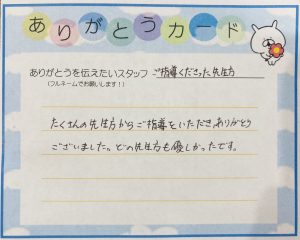 ありがとうカード
ありがとうを伝えたいスタッフ ご指導くださった先生方
(フルネームでお願いします!)
たくさんの先生方からご指導をいただき、ありがとう
ございました。どの先生方も優しかったです。